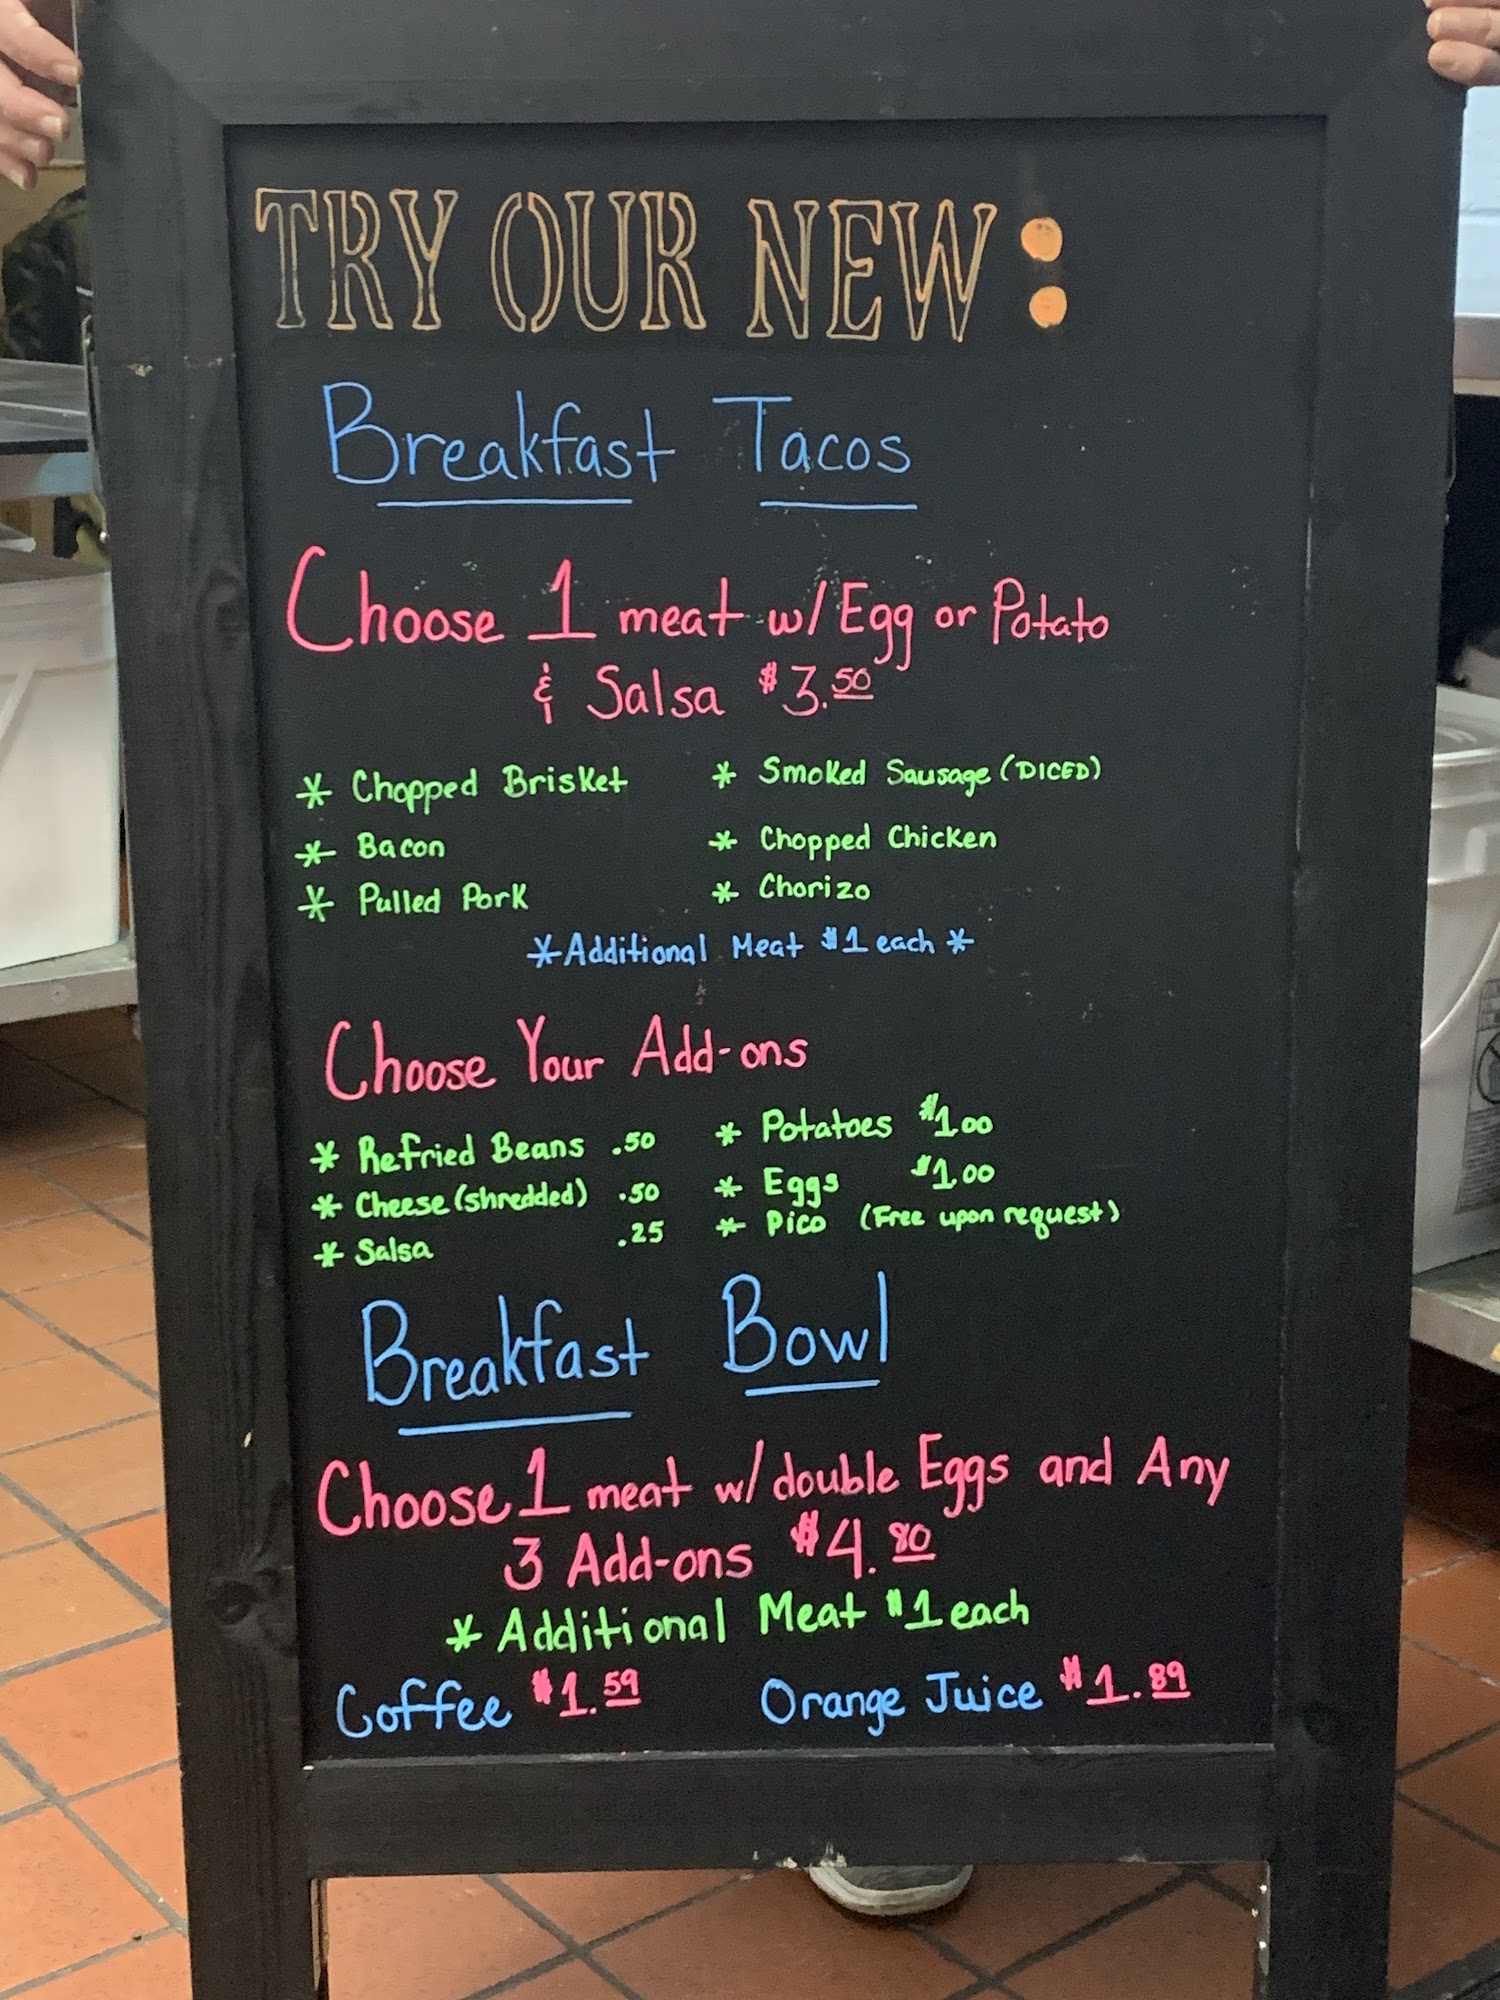 TRY OUR NEW:
Breakfast Tacos
Choose 1 meat w/ Egg or Potato
& Salsa $3.50
* Chopped Brisket * Smoked Sausage (DICED)
* Bacon * Chopped Chicken
* Pulled Pork * Chorizo
*Additional Meat $1 each *
Choose Your Add-ons
* Refried Beans .50 * Potatoes $1.00
* Cheese (shredded) .50 * Eggs $1.00
* Salsa .25 * Pico (Free upon request)
Breakfast Bowl
Choose 1 meat w/ double Eggs and Any
3 Add-ons $4.80
* Additional Meat $1 each
Coffee $1.59 Orange Juice $1.89